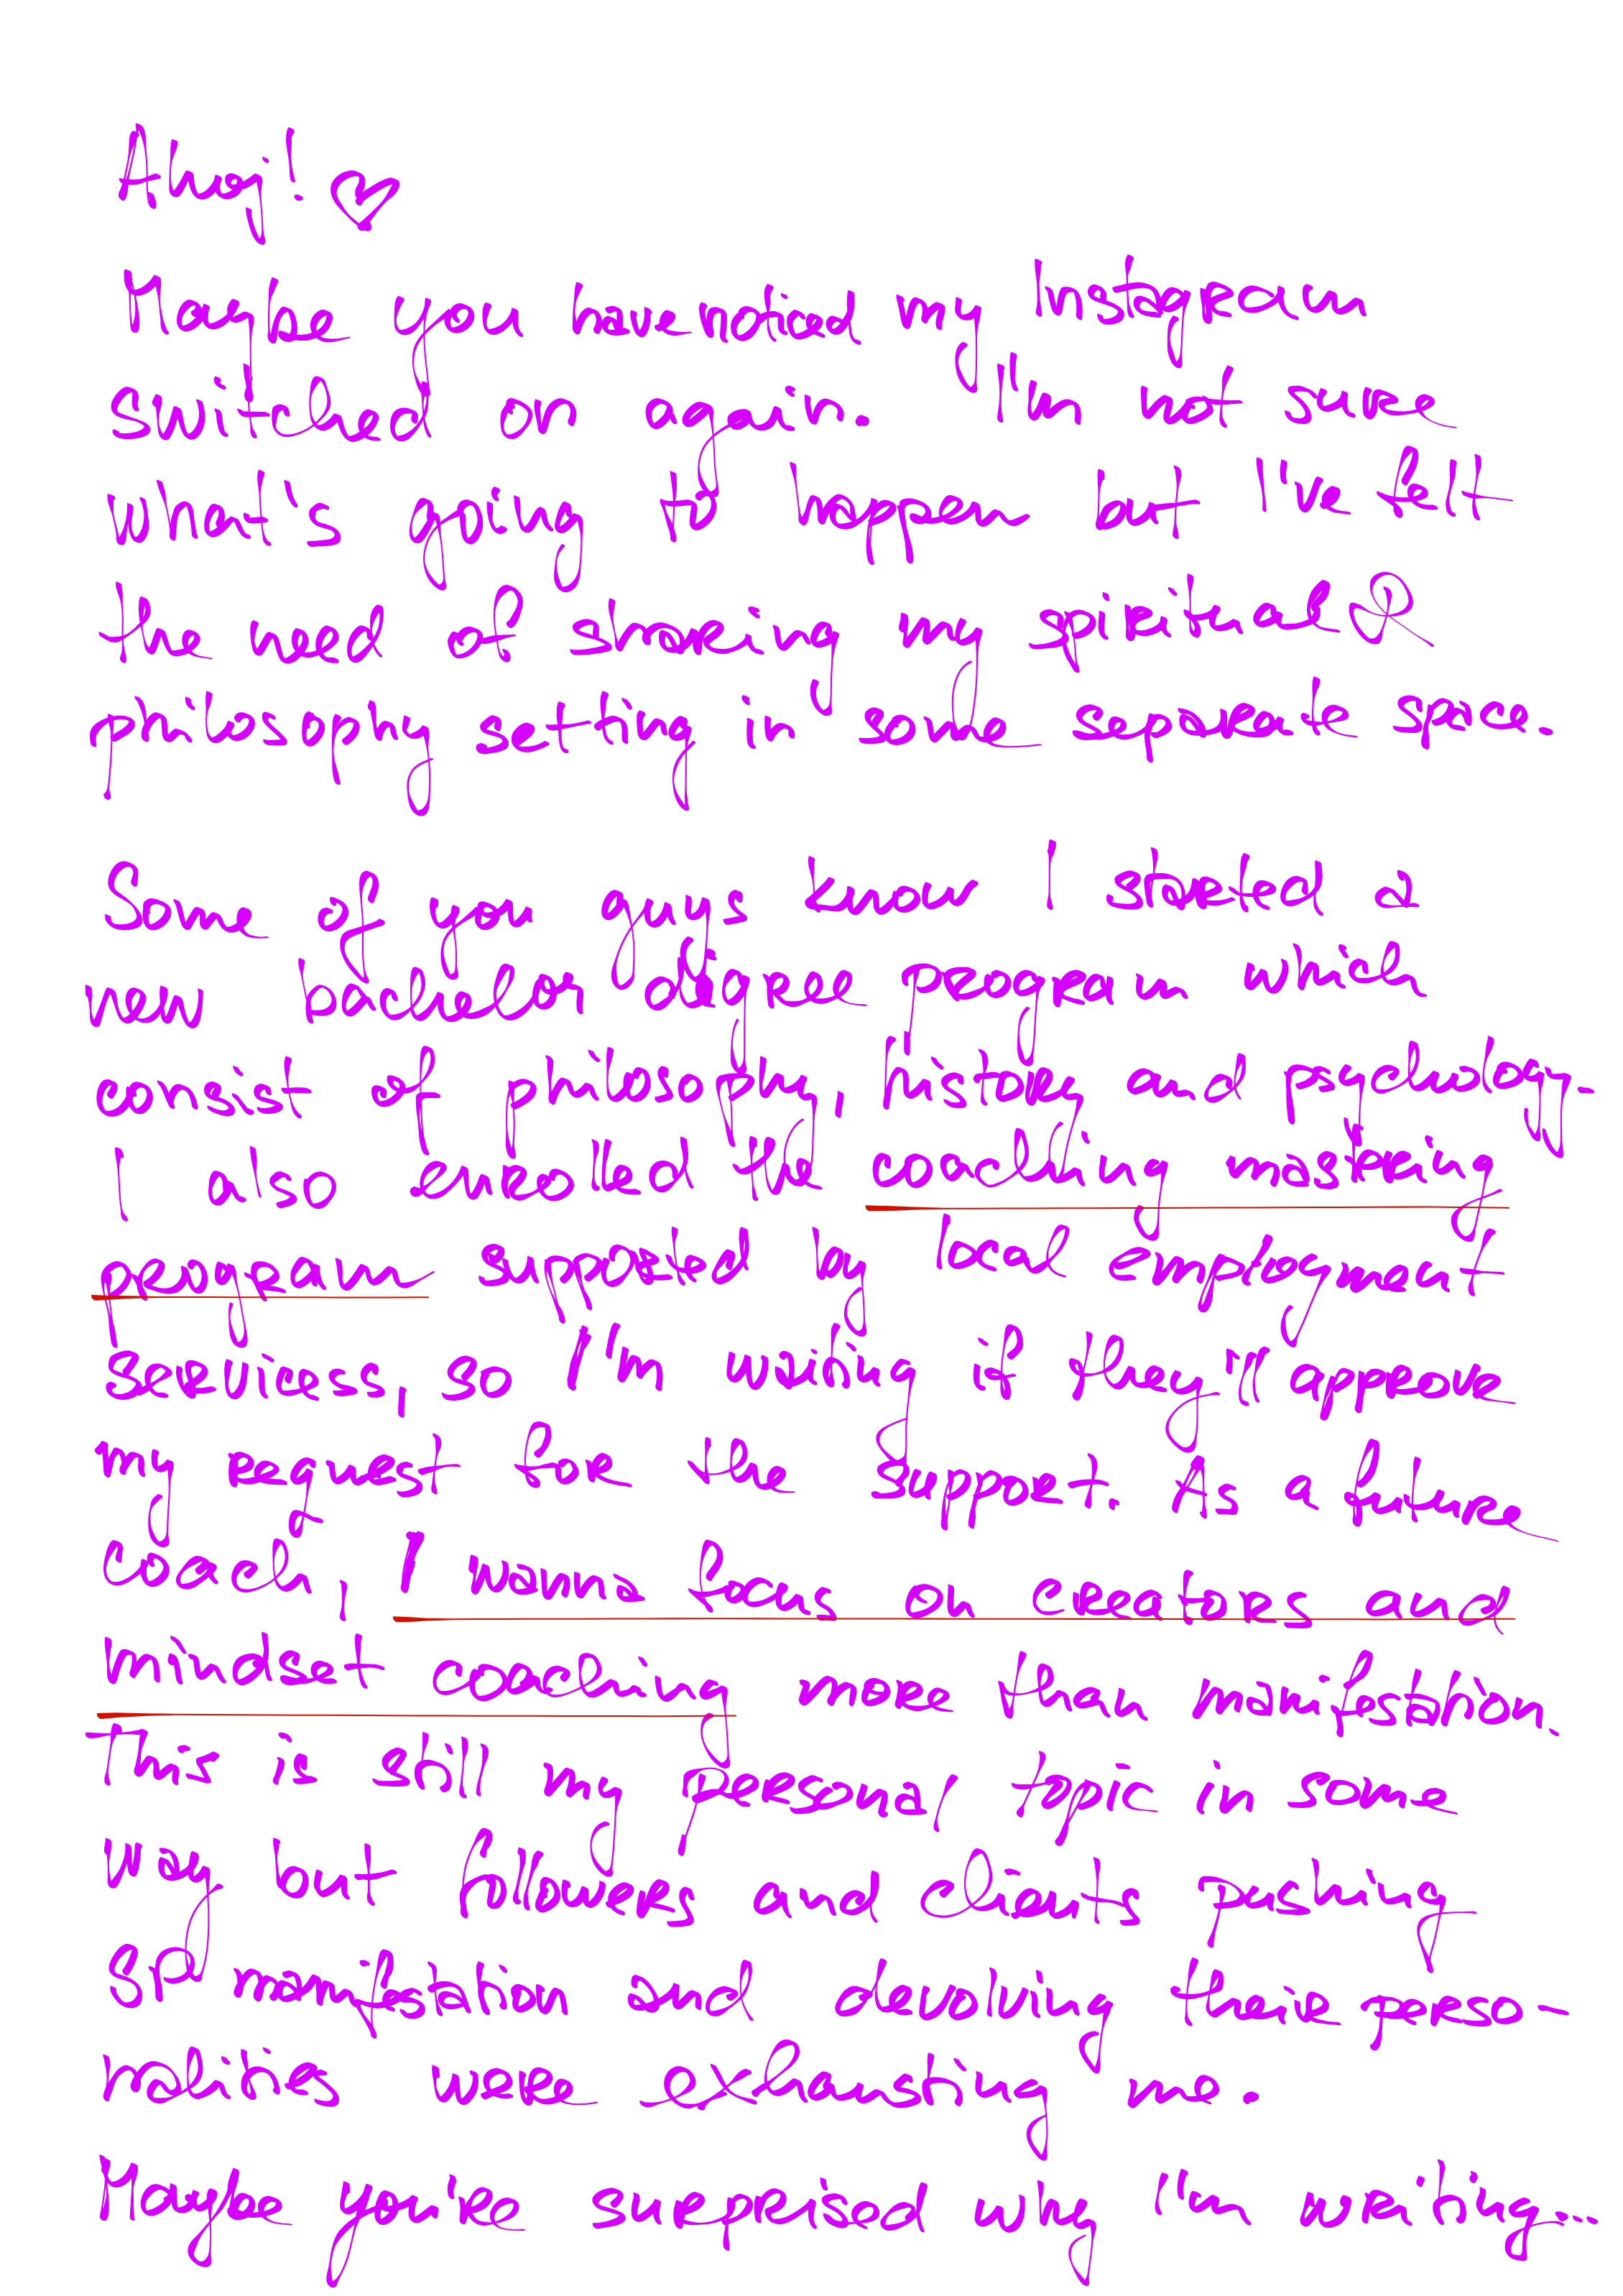 Ahoj! ♡
Maybe you have noticed my Instagram
switched on again. I'm not sure
what's going to happen but I've felt
the need of sharing my spiritual &
philosophy setting in some separate space.
Some of you guys know I started a
new bachelor degree program which
consist of philosophy, history and psychology.
I also enrolled the coaching mastering
program supported by local employment
services, so I'm waiting if they'll approve
my request for the support. As a future
coach, I wanna focus on creators and
mindset coaching more than manifestation.
This is still my personal topic in some
way but followers and clients pushing
SP manifestation and devolving their perso-
nalities were exhausting me.
Maybe you're surprised why I'm writing...